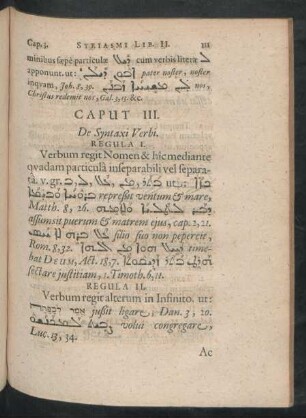 Cap. 3. SYRIASMI LIB. II. 111
minibus sępè particulæ cum verbis literæ
apponunt. ut: pater noster, noster
inqvam, Joh. 8, 39. nos,
Christus redemit nos, Gal. 3, 13. &c.
CAPUT III.
De Syntaxi Verbi.
REGULA I.
Verbum regit Nomen & hic mediante
qvadam particulâ inseparabili vel separa-
tâ. v. gr. ut:
repressit ventum & mare,
Matth. 8, 26.
assumsit puerum & matrem ejus, cap. 2, 21.
filio suo non pepercit,
Rom. 8, 32. time-
bat Deum, Act. 18. 7.
sectare justitiam, 1. Timoth. 6, 11.
REGULA II.
Verbum regit alterum in Infinito. ut:
jussit ligare, Dan. 3, 20.
volui congregare,
Luc. 13, 34.
Ac